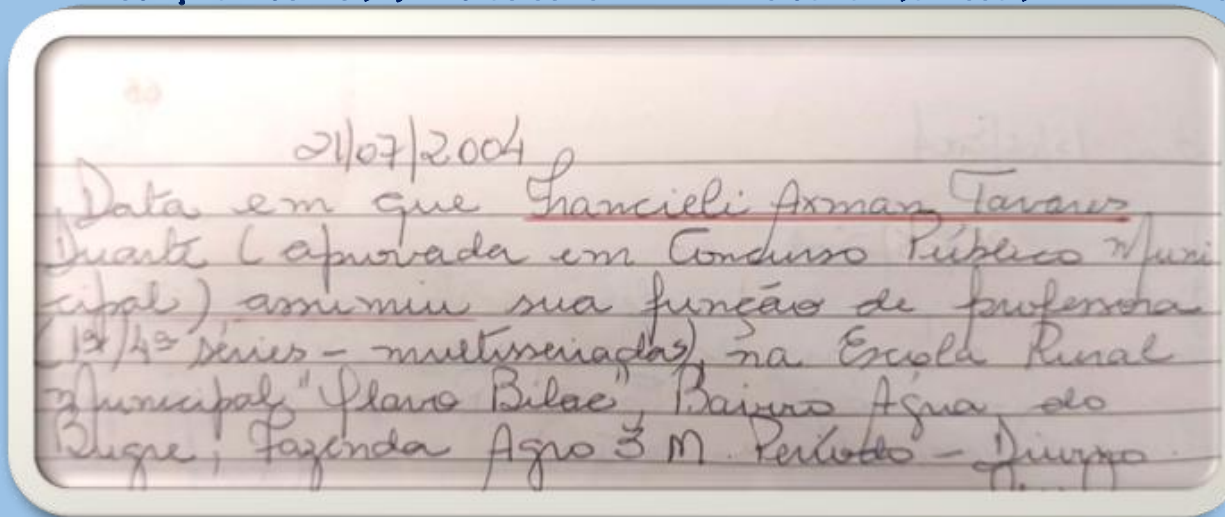 21/07/2004
Data em que Francieli Arman Tavares
Duarte (aprovada em Concurso Público Muni
cipal) assumiu sua função de professora
(1ª/4ª séries - multisseriadas), na Escola Rural
Municipal "Olavo Bilac", Bairro Água do
Bugre, Fazenda Agro 3 M. Período - Diurno.